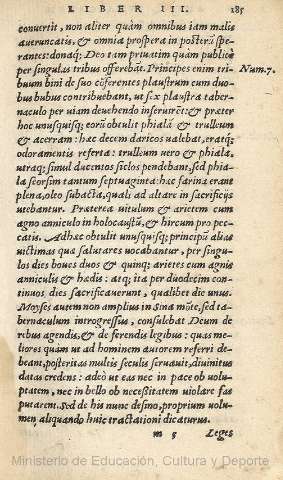 LIBER III. 185
conuertit, non aliter quàm omnibus iam malis
auerruncatis, & omnia prospera in posterũ spe-
rantes: donaq; Deo tam priuatim quàm publicè
per singulas tribus offerebãt. Principes enim tri-
buum bini de suo cõferentes plaustrum cum duo-
bus bubus contribuebant, ut sex plaustra taber-
naculo per uiam deuehendo inseruirēt: & præter
hoc unusquisq; eorũ obtulit phialã & trulleum
& acerram: hæc decem daricos ualebat, eratq;
odoramentis referta: trulleum uero & phiala,
utraq; simul ducentos siclos pendebant, sed phia-
la seorsim tantum septuaginta: hæc farina erant
plena, oleo subacta, quali ad altare in sacrificijs
utebantur. Præterea uitulum & arietem cum
agno anniculo in holocaustũ, & hircum pro pec-
catis. Adhæc obtulit unusquisq; principũ alias
uictimas quæ salutares uocabantur, per singu-
los dies boues duos & quinq; arietes cum agnis
anniculis & hœdis: atq; ita per duodecim con-
tinuos dies sacrificauerunt, qualibet die unus.
Moyses autem non amplius in Sina mõte, sed ta-
bernaculum introgressus, consulebat Deum de
rebus agendis, & de ferendis legibus: quas me-
liores quàm ut ad hominem autorem referri de-
beant, posteritas multis seculis seruauit, diuinitus
datas credens: adeò ut eas nec in pace ob uolu-
ptatem, nec in bello ob necessitatem uiolare fas
putarem. Sed de his nunc desino, proprium uolu-
men aliquando huic tractationi dicaturus.
m 5 Leges
Num. 7.
Ministerio de Educación, Cultura y Deporte